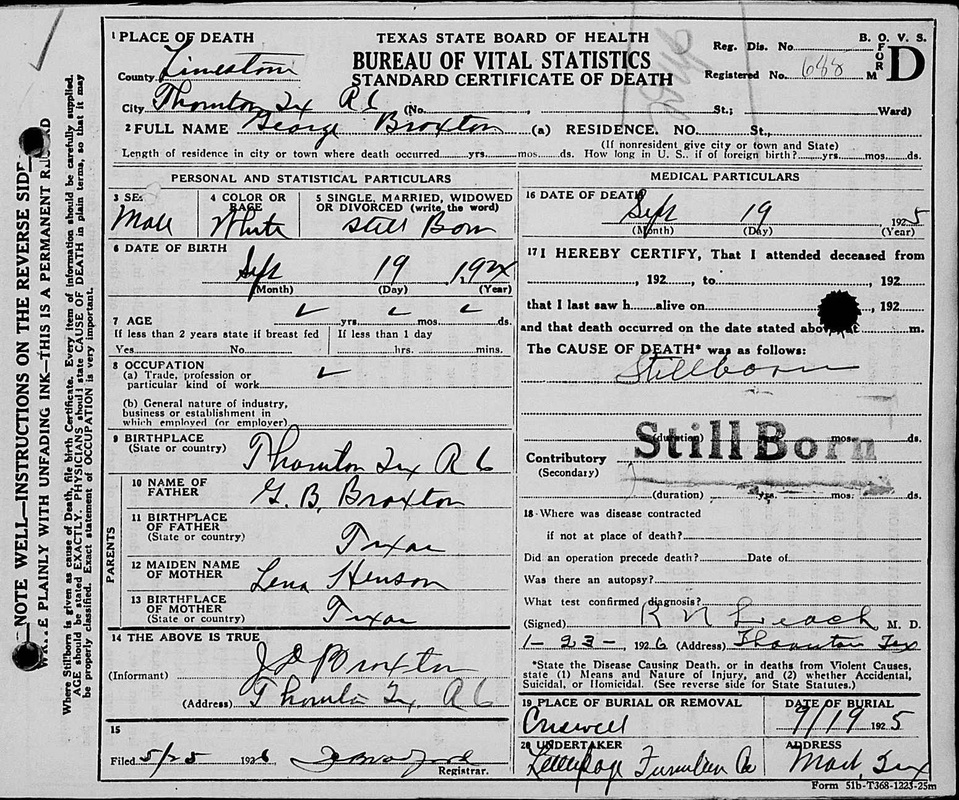 TEXAS STATE BOARD OF HEALTH
BUREAU OF VITAL STATISTICS
STANDARD CERTIFICATE OF DEATH
B. O. V. S.
FORM D
Reg. Dis. No.
Registered No. 688
1 PLACE OF DEATH
County Limestone
City Thornton Tex R 6 (No. St.; Ward)
2 FULL NAME George Broxton (a) RESIDENCE. NO. St.,
(If nonresident give city or town and State)
Length of residence in city or town where death occurred yrs. mos. ds. How long in U. S., if of foreign birth? yrs. mos. ds.
PERSONAL AND STATISTICAL PARTICULARS
3 SEX
Male
4 COLOR OR RACE
White
5 SINGLE, MARRIED, WIDOWED
OR DIVORCED (write the word)
Still Born
6 DATE OF BIRTH
Sept 19 192
(Month) (Day) (Year)
7 AGE yrs. mos. ds.
If less than 2 years state if breast fed
Yes No.
If less than 1 day
hrs. mins.
8 OCCUPATION
(a) Trade, profession or
particular kind of work
(b) General nature of industry,
business or establishment in
which employed (or employer)
9 BIRTHPLACE
(State or country)
Thornton Tex R 6
PARENTS
10 NAME OF
FATHER
G. B. Broxton
11 BIRTHPLACE
OF FATHER
(State or country)
Texas
12 MAIDEN NAME
OF MOTHER
Lena Henson
13 BIRTHPLACE
OF MOTHER
(State or country)
Texas
14 THE ABOVE IS TRUE
(Informant) Broxton
(Address) Thornton Tex R 6
15
Filed 5/25 1926
Registrar.
MEDICAL PARTICULARS
16 DATE OF DEATH
Sept 19 1925
(Month) (Day) (Year)
17 I HEREBY CERTIFY, That I attended deceased from
, 192 , to , 192
that I last saw h alive on , 192
and that death occurred on the date stated above, at m.
The CAUSE OF DEATH* was as follows:
Stillborn
Still Born
(duration) yrs. mos. ds.
Contributory
(Secondary)
(duration) yrs. mos. ds.
18 Where was disease contracted
if not at place of death?
Did an operation precede death? Date of
Was there an autopsy?
What test confirmed diagnosis?
(Signed) R N Leach, M. D.
1-23-, 1926 (Address) Thornton Tex
*State the Disease Causing Death, or in deaths from Violent Causes,
state (1) Means and Nature of Injury, and (2) whether Accidental,
Suicidal, or Homicidal. (See reverse side for State Statutes.)
19 PLACE OF BURIAL OR REMOVAL
Criswell
DATE OF BURIAL
9/19 1925
20 UNDERTAKER
Furniture Co
ADDRESS
Mart, Tex
Form 51b-T368-1223-25m
NOTE WELL—INSTRUCTIONS ON THE REVERSE SIDE
WRITE PLAINLY WITH UNFADING INK—THIS IS A PERMANENT RECORD
Where Stillborn is given as cause of Death, file birth Certificate. Every item of information should be carefully supplied.
AGE should be stated EXACTLY. PHYSICIANS should state CAUSE OF DEATH in plain terms, so that it may
be properly classified. Exact statement of OCCUPATION is very important.